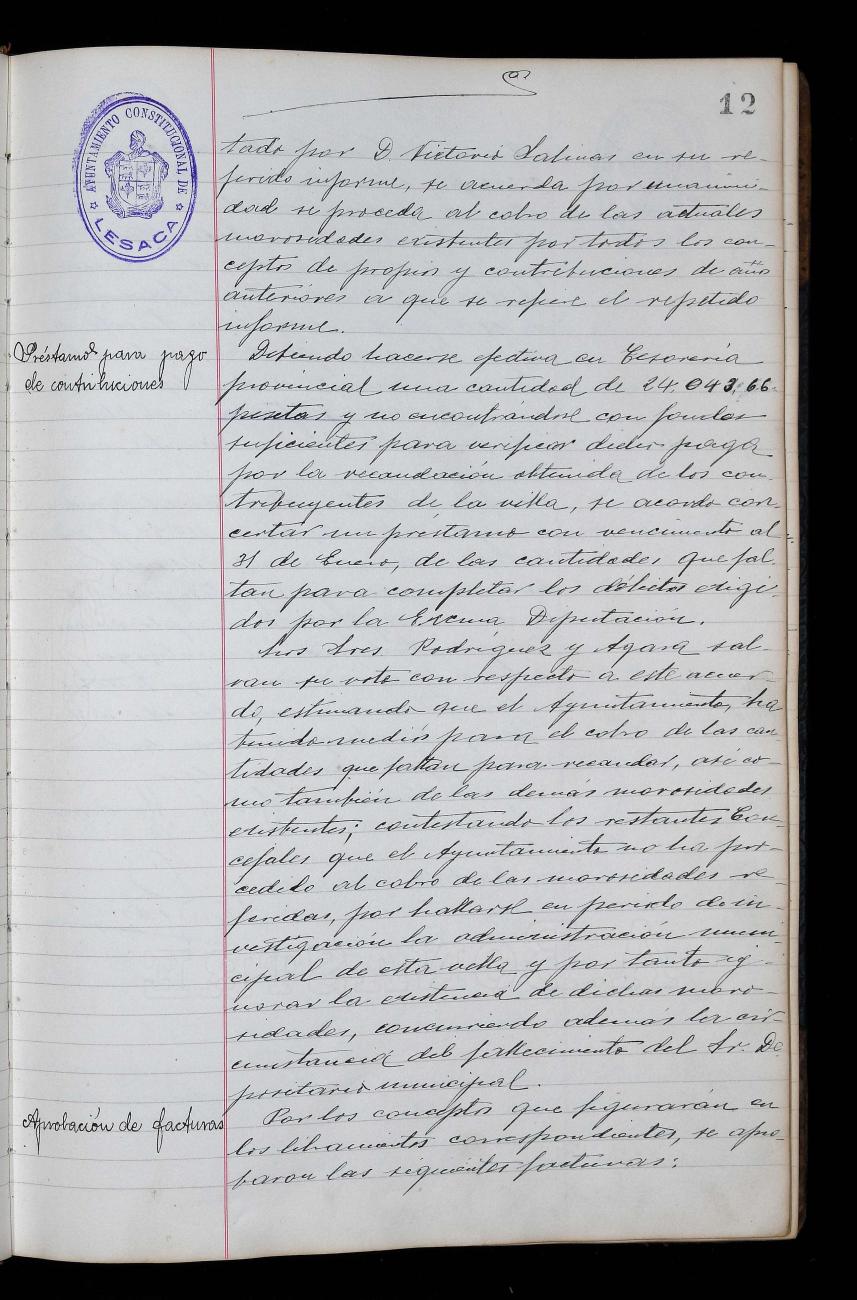 12
AYUNTAMIENTO CONSTITUCIONAL DE
LESACA
tado por D. Victorio Salinas en su re-
ferido informe, se acuerda por unanimi-
dad se proceda al cobro de las actuales
morosidades existentes por todos los con-
ceptos de propios y contribuciones de años
anteriores a que se refiere el repetido
informe.
Préstamos para pago
de contribuciones
Debiendo hacerse efectiva en Tesorería
provincial una cantidad de 24.043,66
pesetas y no encontrándose con fondos
suficientes para verificar dicho pago
por la recaudación obtenida de los con-
tribuyentes de la villa, se acordó con-
certar un préstamo con vencimiento al
31 de Enero, de las cantidades que fal-
tan para completar los débitos exigi-
dos por la Excma Diputación.
Los Sres Rodríguez y Agara sal-
van su voto con respecto a este acuer-
do, estimando que el Ayuntamiento, ha
tenido medios para el cobro de las can-
tidades que faltan para recaudar, así co-
mo también de las demás morosidades
existentes; contestando los restantes Con-
cejales que el Ayuntamiento no ha pro-
cedido al cobro de las morosidades re-
feridas, por hallarse en periodo de in-
vestigación la administración muni-
cipal de esta villa y por tanto ig-
norar la existencia de dichas moro-
sidades, concurriendo además la cir-
cunstancia del fallecimiento del Sr. De-
positario municipal.
Aprobación de facturas
Por los conceptos que figurarán en
los libramientos correspondientes, se apro-
baron las siguientes facturas: